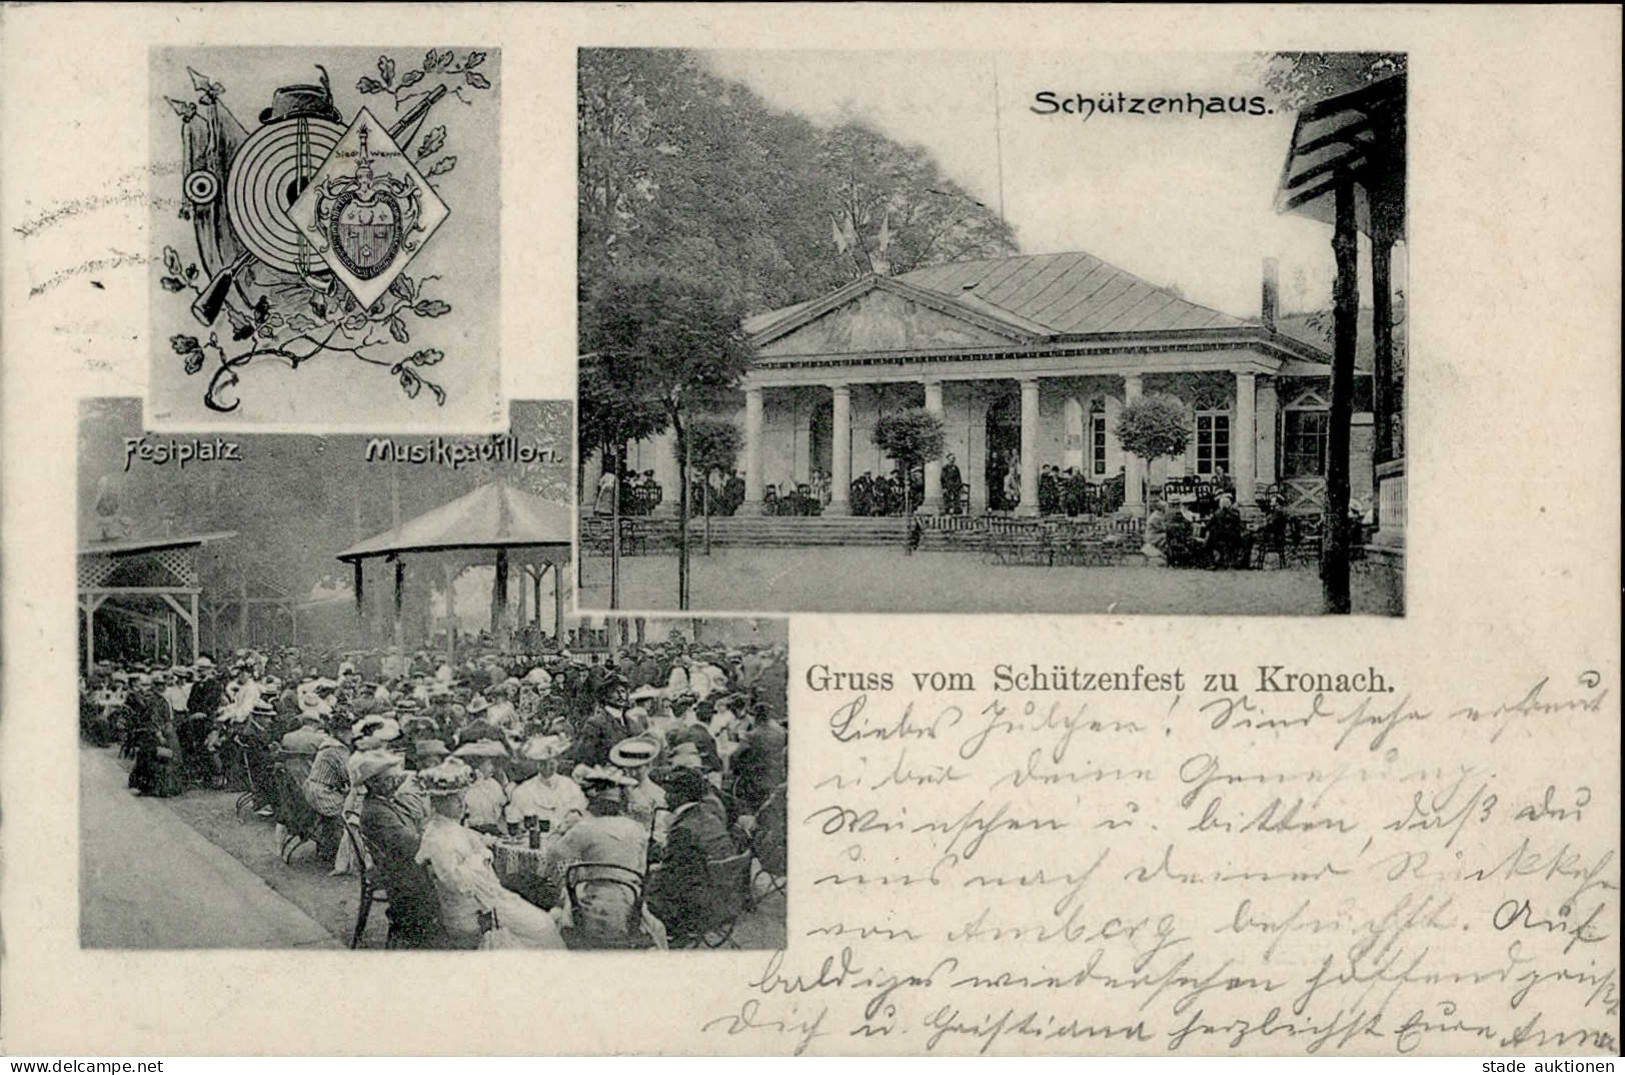 Stadt Wappen
Schützenhaus.
Festplatz.
Musikpavillon.
Gruss vom Schützenfest zu Kronach.
Liebes Julchen! Sind sehr erfreut
über deine Genesung.
Wünschen u. bitten, daß Du
uns nach deiner Rückkehr
von Amberg besuchst. Auf
baldiges wiedersehen hoffend grüßt
Dich u. Christiana herzlichst Eure Anna
www.delcampe.net
stade auktionen